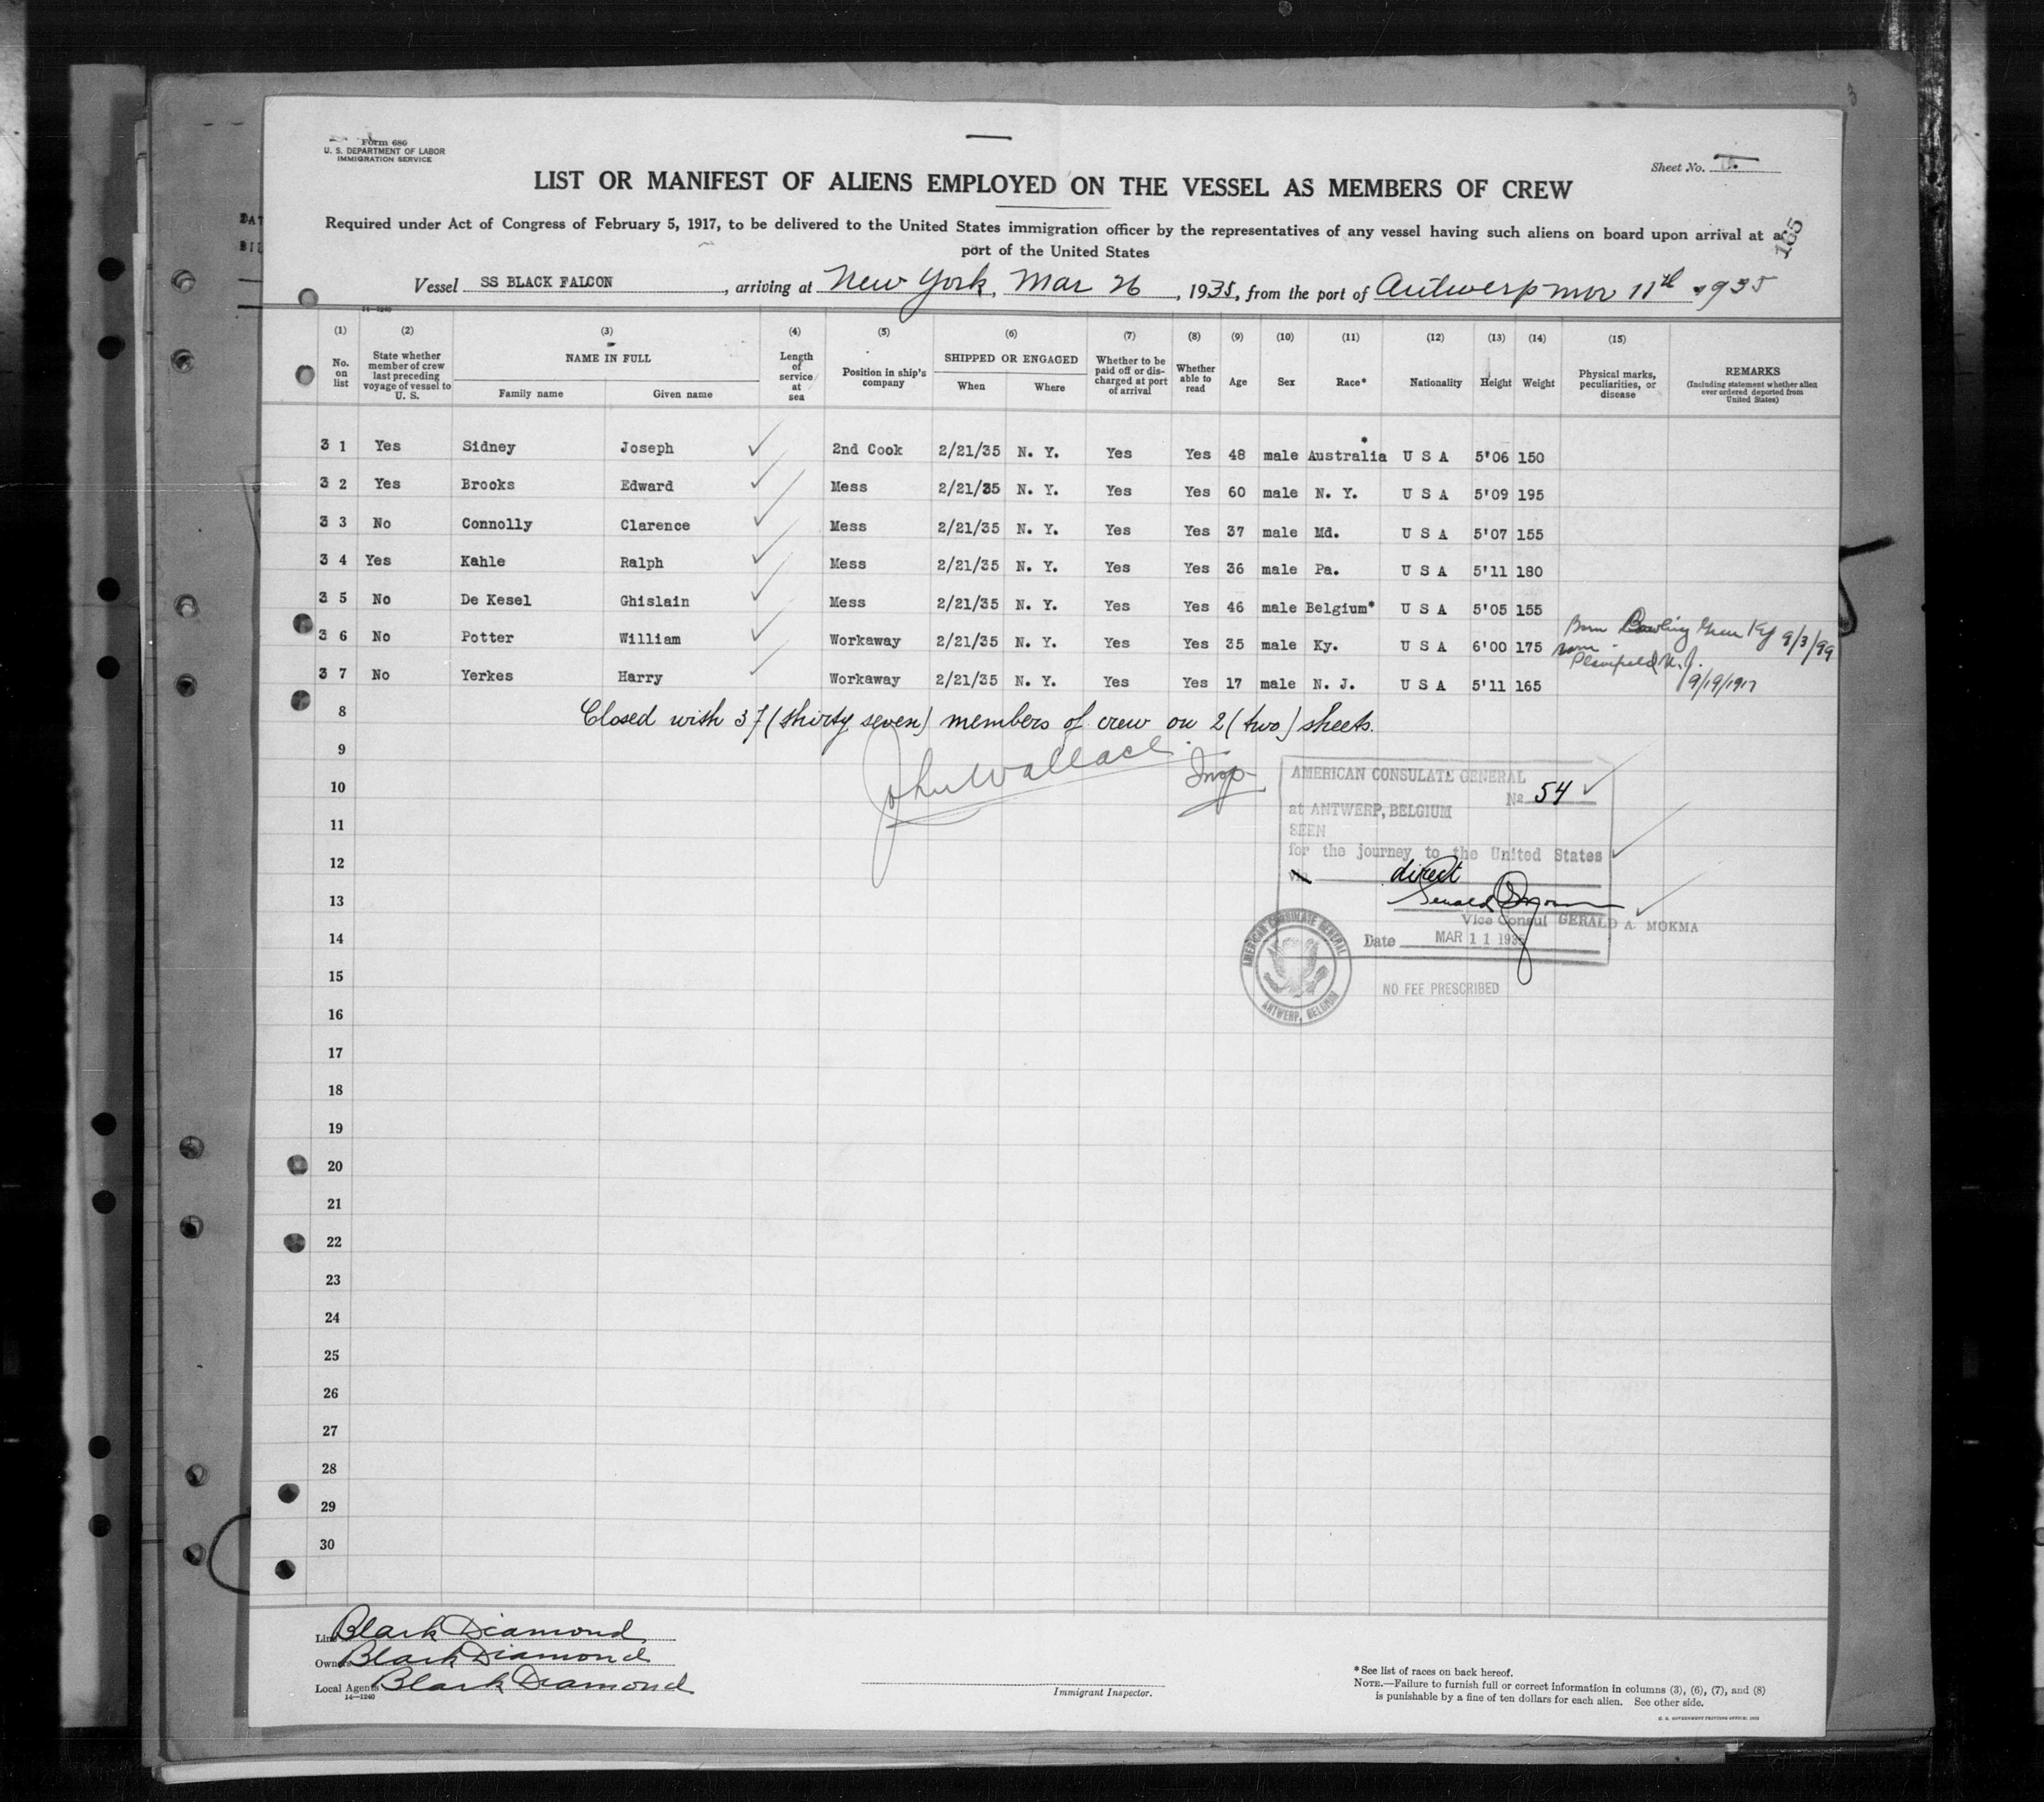 Form 680
U. S. DEPARTMENT OF LABOR
IMMIGRATION SERVICE
Sheet No.
LIST OR MANIFEST OF ALIENS EMPLOYED ON THE VESSEL AS MEMBERS OF CREW
Required under Act of Congress of February 5, 1917, to be delivered to the United States immigration officer by the representatives of any vessel having such aliens on board upon arrival at a
port of the United States
165
Vessel SS BLACK FALCON, arriving at New York, Mar 26, 1935, from the port of Antwerp Mar 11th 1935
14—1240
(1) (2) (3) (4) (5) (6) (7) (8) (9) (10) (11) (12) (13) (14) (15)
No. on list State whether member of crew last preceding voyage of vessel to U. S. NAME IN FULL Family name Given name Length of service at sea Position in ship's company SHIPPED OR ENGAGED When Where Whether to be paid off or discharged at port of arrival Whether able to read Age Sex Race* Nationality Height Weight Physical marks, peculiarities, or disease REMARKS (Including statement whether alien ever ordered deported from United States)
3 1 Yes Sidney Joseph 2nd Cook 2/21/35 N. Y. Yes Yes 48 male Australia * U S A 5'06 150
3 2 Yes Brooks Edward Mess 2/21/35 N. Y. Yes Yes 60 male N. Y. U S A 5'09 195
3 3 No Connolly Clarence Mess 2/21/35 N. Y. Yes Yes 37 male Md. U S A 5'07 155
3 4 Yes Kahle Ralph Mess 2/21/35 N. Y. Yes Yes 36 male Pa. U S A 5'11 180
3 5 No De Kesel Ghislain Mess 2/21/35 N. Y. Yes Yes 46 male Belgium* U S A 5'05 155
3 6 No Potter William Workaway 2/21/35 N. Y. Yes Yes 35 male Ky. U S A 6'00 175 Born Bowling Green Ky 9/3/99
3 7 No Yerkes Harry Workaway 2/21/35 N. Y. Yes Yes 17 male N. J. U S A 5'11 165 Born Plainfield N. J. 9/19/1917
8 Closed with 37 (thirty seven) members of crew on 2 (two) sheets.
9
John Wallace Insp
10
11
12
13
14
15
16
17
18
19
20
21
22
23
24
25
26
27
28
29
30
AMERICAN CONSULATE GENERAL
No 54
at ANTWERP, BELGIUM
SEEN
for the journey to the United States
via direct
Vice Consul GERALD A. MOKMA
Date MAR 11 1935
NO FEE PRESCRIBED
AMERICAN CONSULATE GENERAL
ANTWERP, BELGIUM
Line Black Diamond
Owners Black Diamond
Local Agents Black Diamond
14—1240
Immigrant Inspector.
*See list of races on back hereof.
NOTE.—Failure to furnish full or correct information in columns (3), (6), (7), and (8)
is punishable by a fine of ten dollars for each alien. See other side.